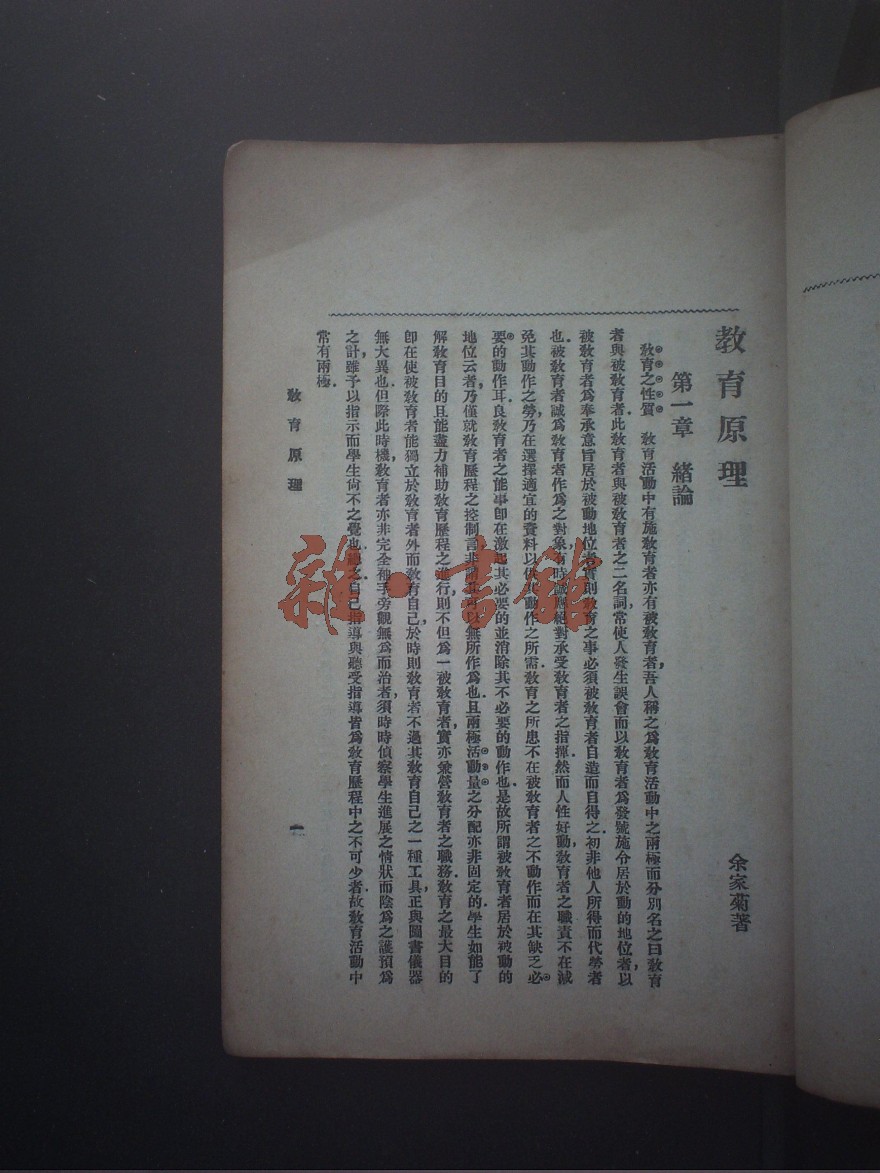 教育原理
余家菊著
第一章 緒論
教育之性質 教育活動中有施教育者亦有被教育者,吾人稱之為教育活動中之兩極而分別名之曰教育
者與被教育者.此教育者與被教育者之二名詞,常使人發生誤會而以教育者為發號施令居於動的地位者,以
被教育者為奉承意旨居於被動地位者.實則教育之事必須被教育者自造而自得之.初非他人所得而代勞者
也.被教育者誠為教育者作為之對象,有時誠須絕對承受教育者之指揮.然而人性好動,教育者之職責不在減
免其動作之勞,乃在選擇適宜的資料以供其動作之所需.教育之所患不在被教育者之不動作而在其缺乏必
要的動作耳.良教育者之能事卽在激起其必要的並消除其不必要的動作也.是故所謂被教育者居於被動的
地位云者,乃僅就教育歷程之控制言,非謂其可以無所作為也.且兩極活動量之分配亦非固定的.學生如能了
解教育目的且能盡力補助教育歷程之進行,則不但為一被教育者,實亦兼營教育者之職務.教育之最大目的
卽在使被教育者能獨立於教育者外而教育自己,於時則教育者不過其教育自己之一種工具,正與圖書儀器
無大異也.但際此時機,教育者亦非完全袖手旁觀無為而治者,須時時偵察學生進展之情狀而陰為之護預為
之計,雖予以指示而學生尙不之覺也.總之,自己指導與聽受指導皆為教育歷程中之不可少者.故教育活動中
常有兩極.
教育原理
一
雜·書館